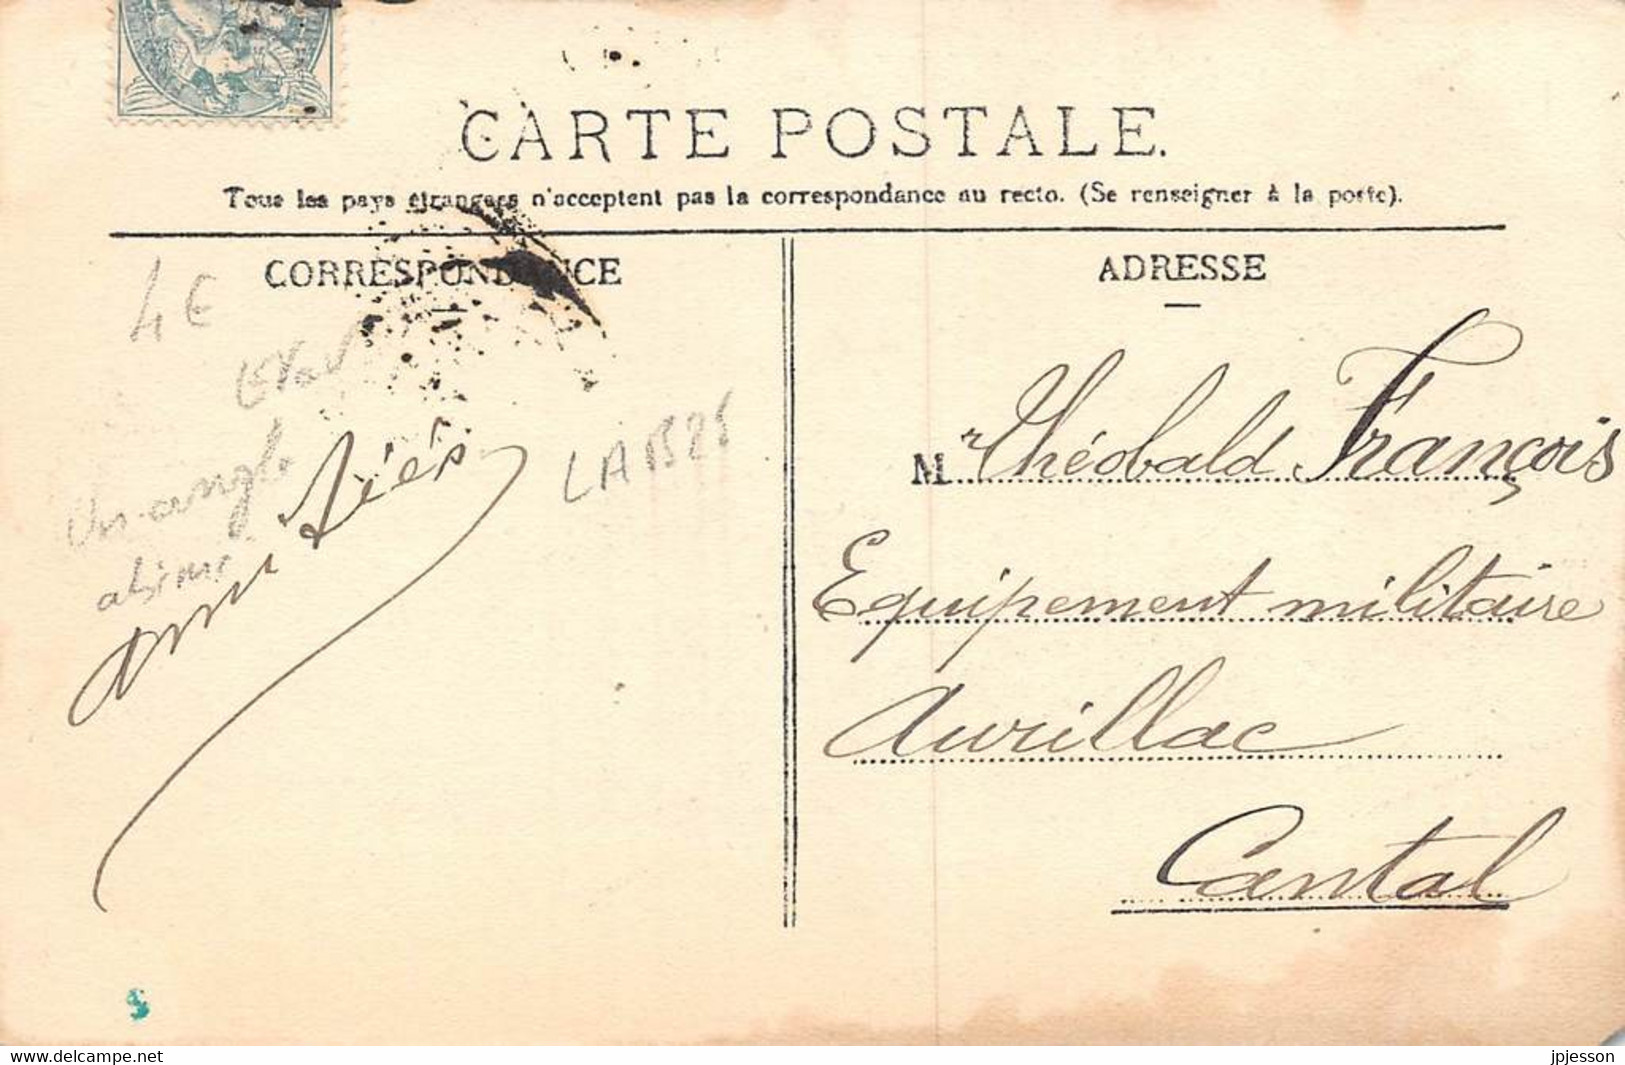 CARTE POSTALE.
Tous les pays étrangers n'acceptent pas la correspondance au recto. (Se renseigner à la poste).
CORRESPONDANCE
ADRESSE
4€
un angle
abimé
LAB25
M
r Théobald François
Equipement militaire
Aurillac
Cantal
www.delcampe.net
jpjesson